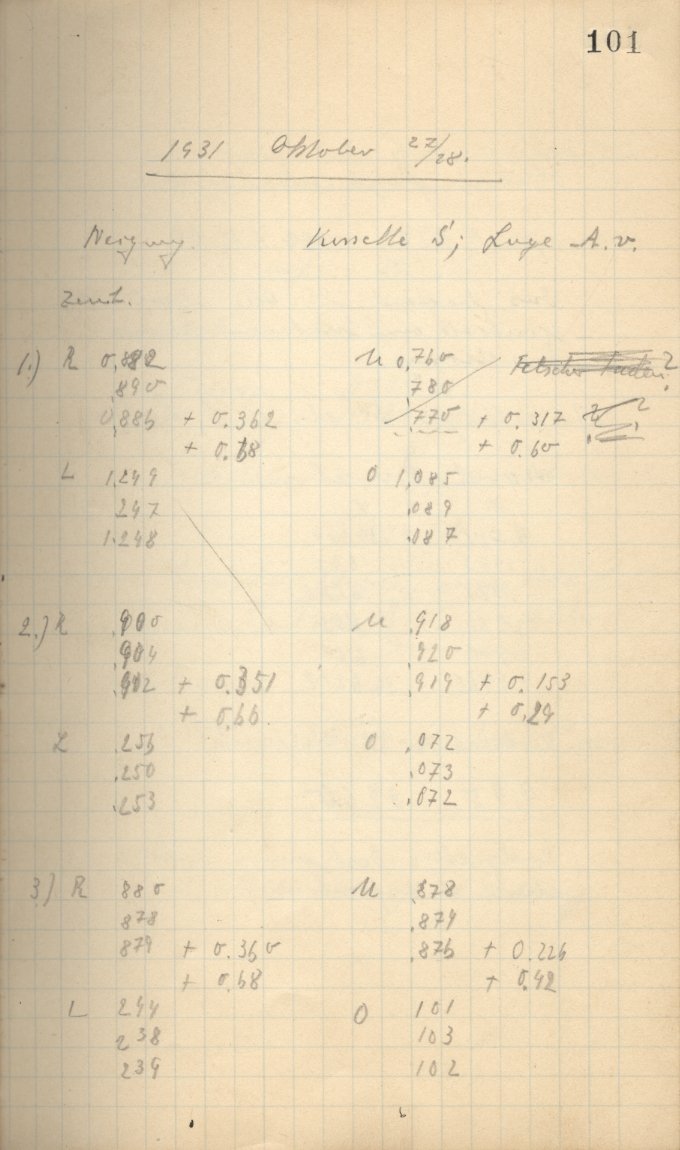 101
1931 Oktober 27/28.
Neigung. Kassette S; Lage A.v.
Zenit.
1.) R 0,882 U 0,760 Falscher Faden?
,890 ,780
0,886 + 0.362 ,770 + 0.317 ? ?
+ 0.68 + 0.60
L 1,249 O 1,085
247 ,089
1.248 ,087
2.) R ,900 U ,918
,904 920
,902 + 0.351 ,919 + 0.153
+ 0,66. + 0,29
L ,256 O ,072
,250 ,073
,253 ,072
3.) R 880 U ,878
878 ,874
879 + 0.360 ,876 + 0.226
+ 0,68 + 0,42
L 244 O 101
238 103
239 102